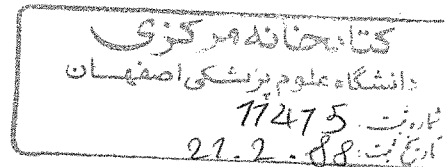 کتابخانه مرکزی
دانشگاه علوم پزشکی اصفهان
شماره ثبت: 11475
تاریخ ثبت: 21.2.88